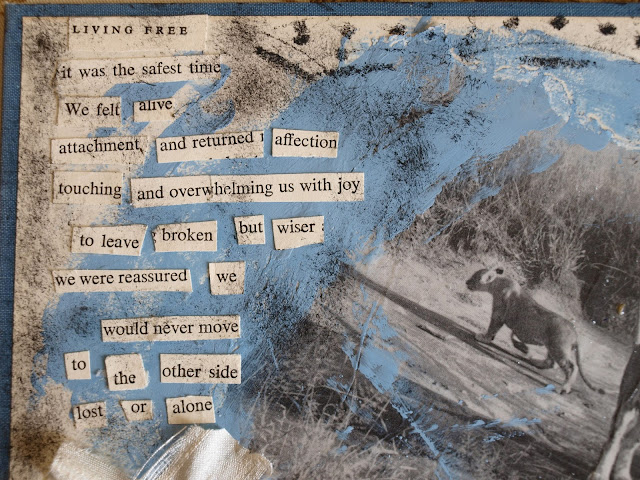 LIVING FREE
it was the safest time
We felt alive
attachment, and returned affection
touching and overwhelming us with joy
to leave broken but wiser
we were reassured we
would never move
to the other side
lost or alone